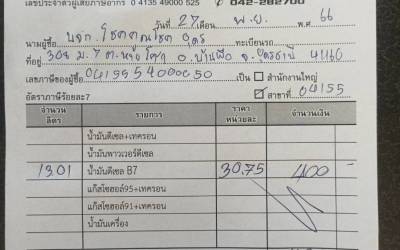 เลขประจำตัวผู้เสียภาษีอากร 0 4135 49000 525 042-282700
วันที่ 27 เดือน พ.ย. พ.ศ 66
นามผู้ซื้อ บจก. โชคคูณโชค อุดร ทะเบียนรถ
ที่อยู่ 308 ม.7 อ.บ้านผือ จ.อุดรธานี 41160
เลขภาษีของผู้ซื้อ 0415554000050 เป็น สำนักงานใหญ่
อัตราภาษีร้อยละ7 สาขาที่ 04155
จำนวน ลิตร รายการ ราคา หน่วยละ จำนวนเงิน
น้ำมันดีเซล+เทครอน
น้ำมันพาวเวอร์ดีเซล
13.01 น้ำมันดีเซล B7 30.75 400
แก๊สโซฮอล์95+เทครอน
แก๊สโซฮอล์91+เทครอน
น้ำมันเครื่อง